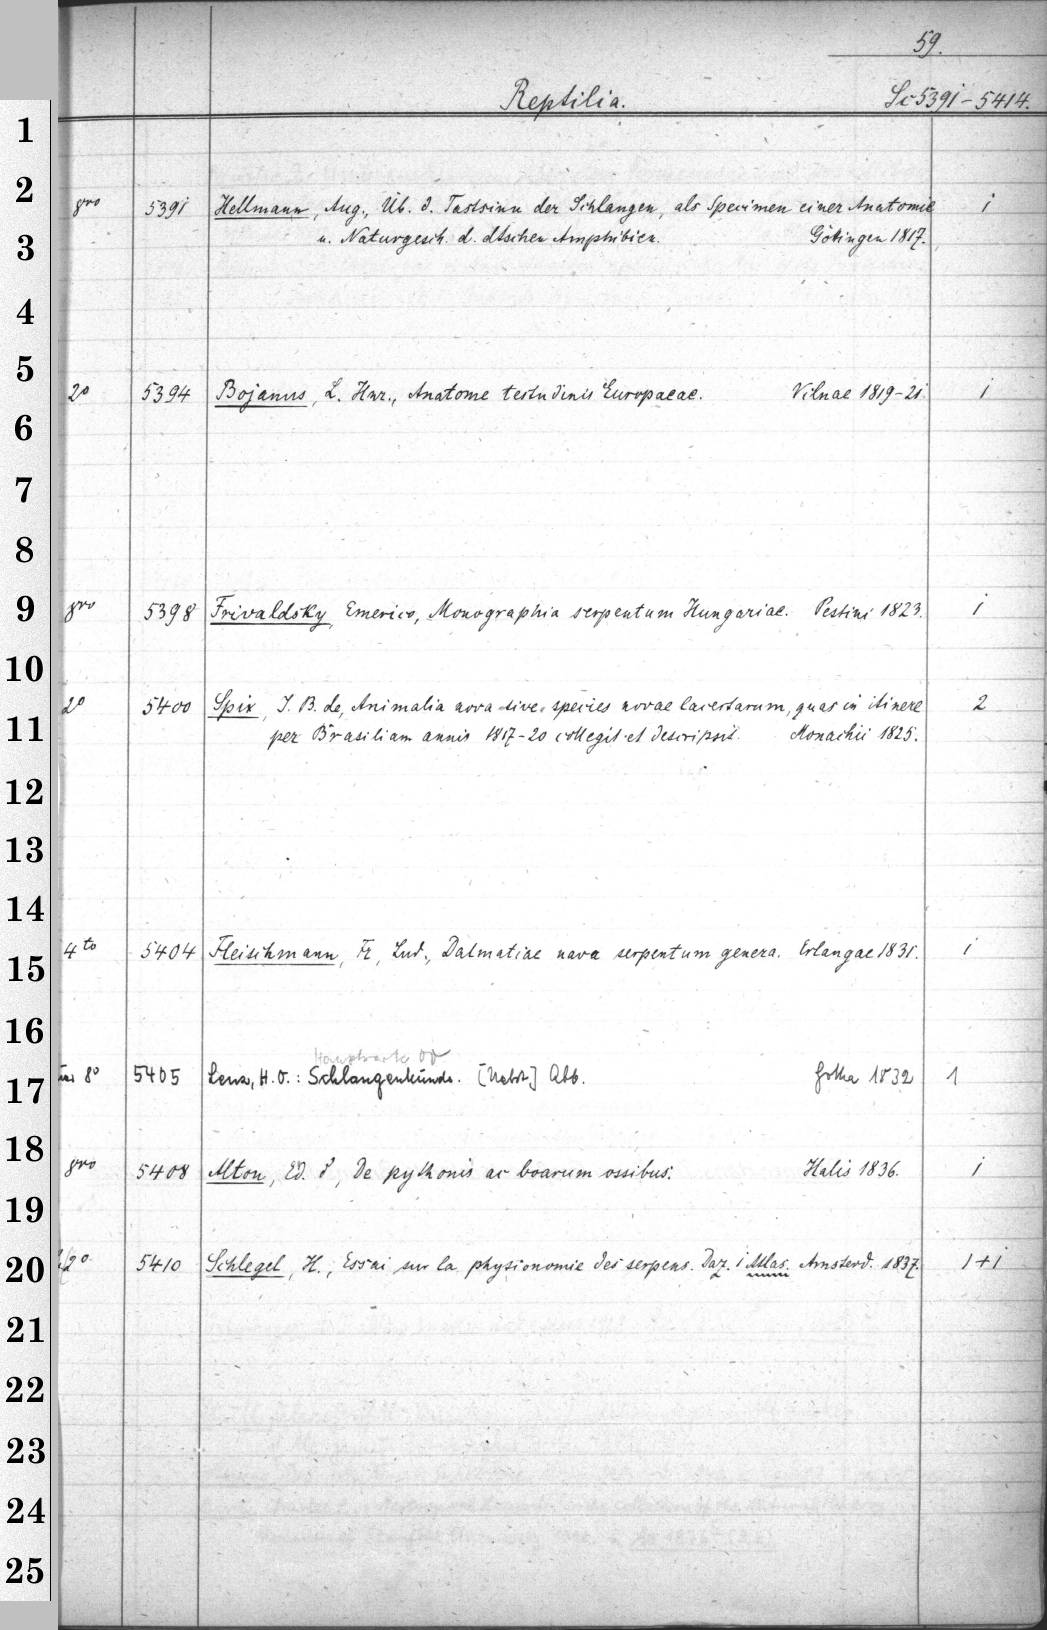 59.
Reptilia. Sc 5391-5414.
1
2
8vo 5391 Hellmann, Aug., Üb. d. Tastsinn der Schlangen, als Specimen einer Anatomie 1
3
u. Naturgesch. d. dtschen Amphibien. Göttingen 1817.
4
5
2o 5394 Bojanus, L. Hnr., Anatome testudinis Europaeae. Vilnae 1819-21. 1
6
7
8
9
8vo 5398 Frivaldsky, Emerico, Monographia serpentum Hungariae. Pestini 1823. 1
10
2o 5400 Spix, J. B. de, Animalia nova sive species novae lacertarum, quas in itinere 2
11
per Brasiliam annis 1817-20 collegit et descripsit. Monachii 1825.
12
13
14
4to 5404 Fleischmann, Fr, Lud., Dalmatiae nova serpentum genera. Erlangae 1831. 1
15
16
17
8o 5405 Lenz, H. O.: Schlangenkunde. [Nebst] Abb. Gotha 1832 1
18
8vo 5408 Alton, Ed. d', De pythonis ac boarum ossibus. Halis 1836. 1
19
20
2o 5410 Schlegel, H., Essai sur la physionomie des serpens. Daz. 1 Atlas. Amsterd. 1837. 1+1
21
22
23
24
25